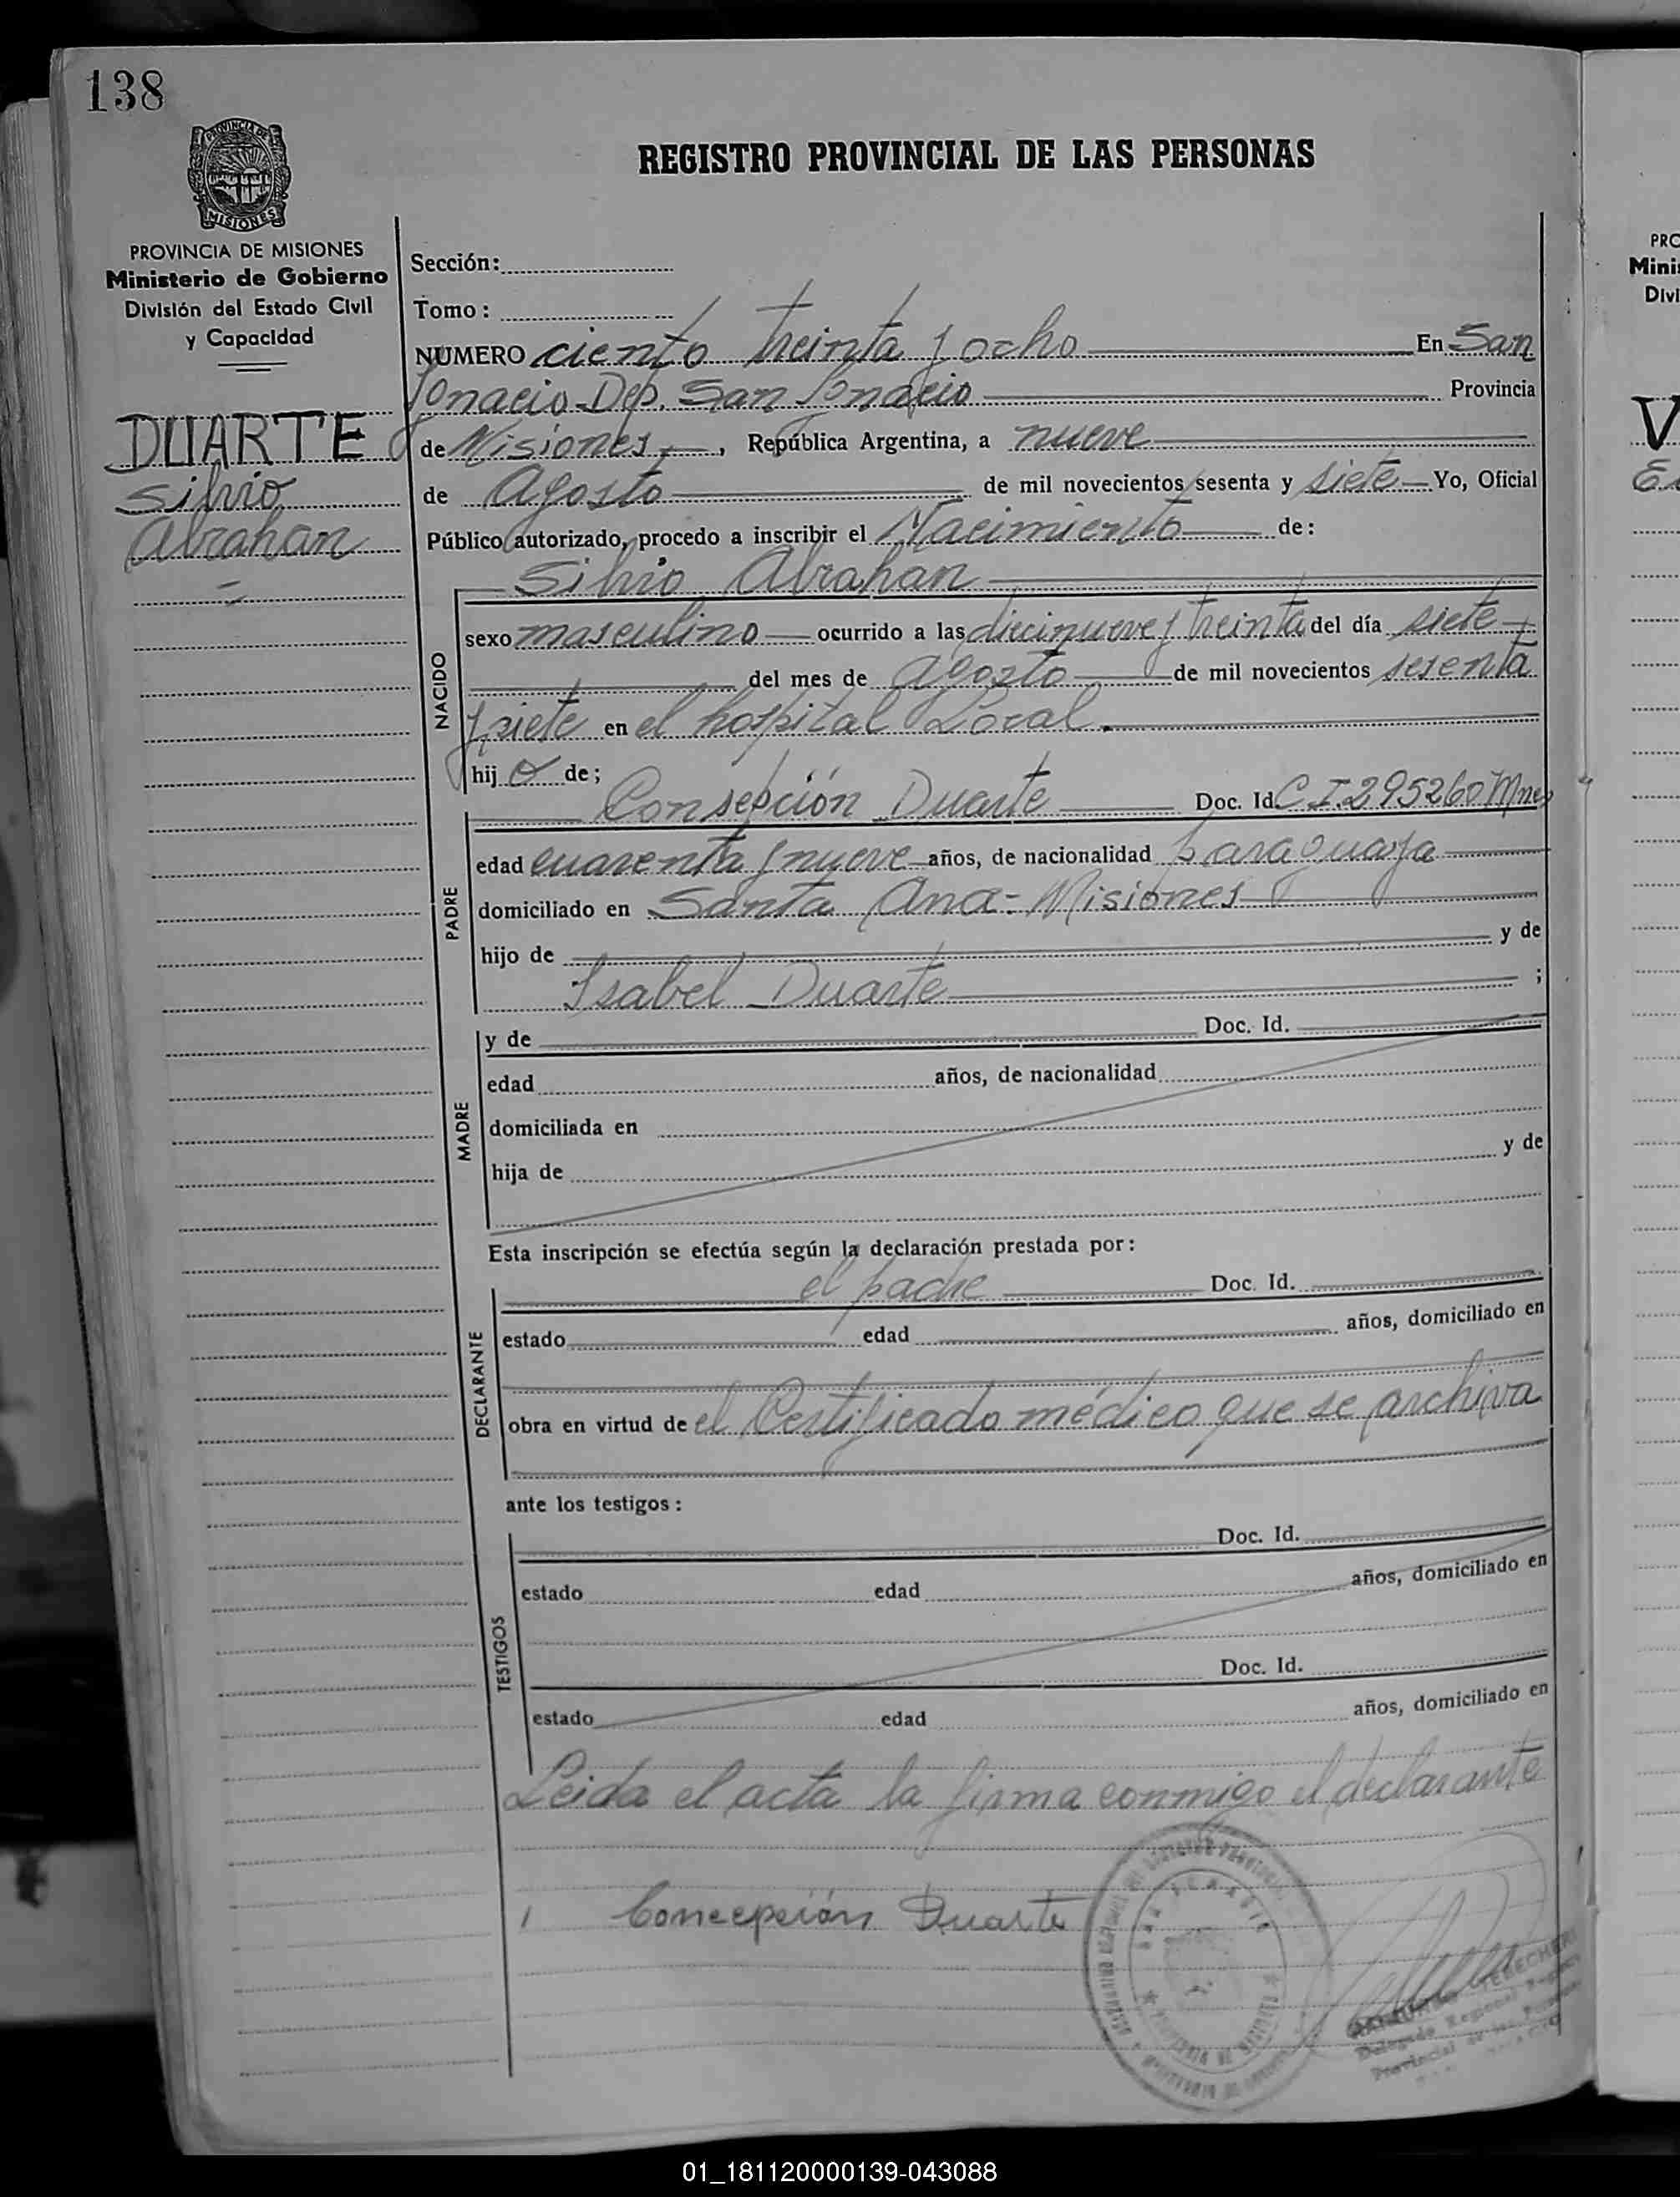 138
PROVINCIA DE
MISIONES
REGISTRO PROVINCIAL DE LAS PERSONAS
PROVINCIA DE MISIONES
Ministerio de Gobierno
División del Estado Civil
y Capacidad
DUARTE
Silvio
Abrahan
Sección:
Tomo:
NUMERO ciento treinta y ocho En San
Ignacio Dep. San Ignacio Provincia
de Misiones, República Argentina, a nueve
de Agosto de mil novecientos sesenta y siete Yo, Oficial
Público autorizado, procedo a inscribir el Nacimiento de:
Silvio Abrahan
NACIDO
sexo masculino ocurrido a las diecinueve y treinta del día siete
del mes de Agosto de mil novecientos sesenta
y siete en el hospital Local.
hijo de;
PADRE
Consepción Duarte Doc. Id. C.I. 295260 Mnes
edad cuarenta y nueve años, de nacionalidad paraguaya
domiciliado en Santa Ana - Misiones
hijo de y de
Isabel Duarte ;
MADRE
y de Doc. Id.
edad años, de nacionalidad
domiciliada en
hija de y de
Esta inscripción se efectúa según la declaración prestada por:
DECLARANTE
el padre Doc. Id.
estado edad años, domiciliado en
obra en virtud de el Certificado médico que se archiva
ante los testigos:
TESTIGOS
Doc. Id.
estado edad años, domiciliado en
Doc. Id.
estado edad años, domiciliado en
Leida el acta la firma conmigo el declarante
Concepción Duarte
Delegado Regional
Provincial de las
PRO
Minis
Divi
V
01_181120000139-043088